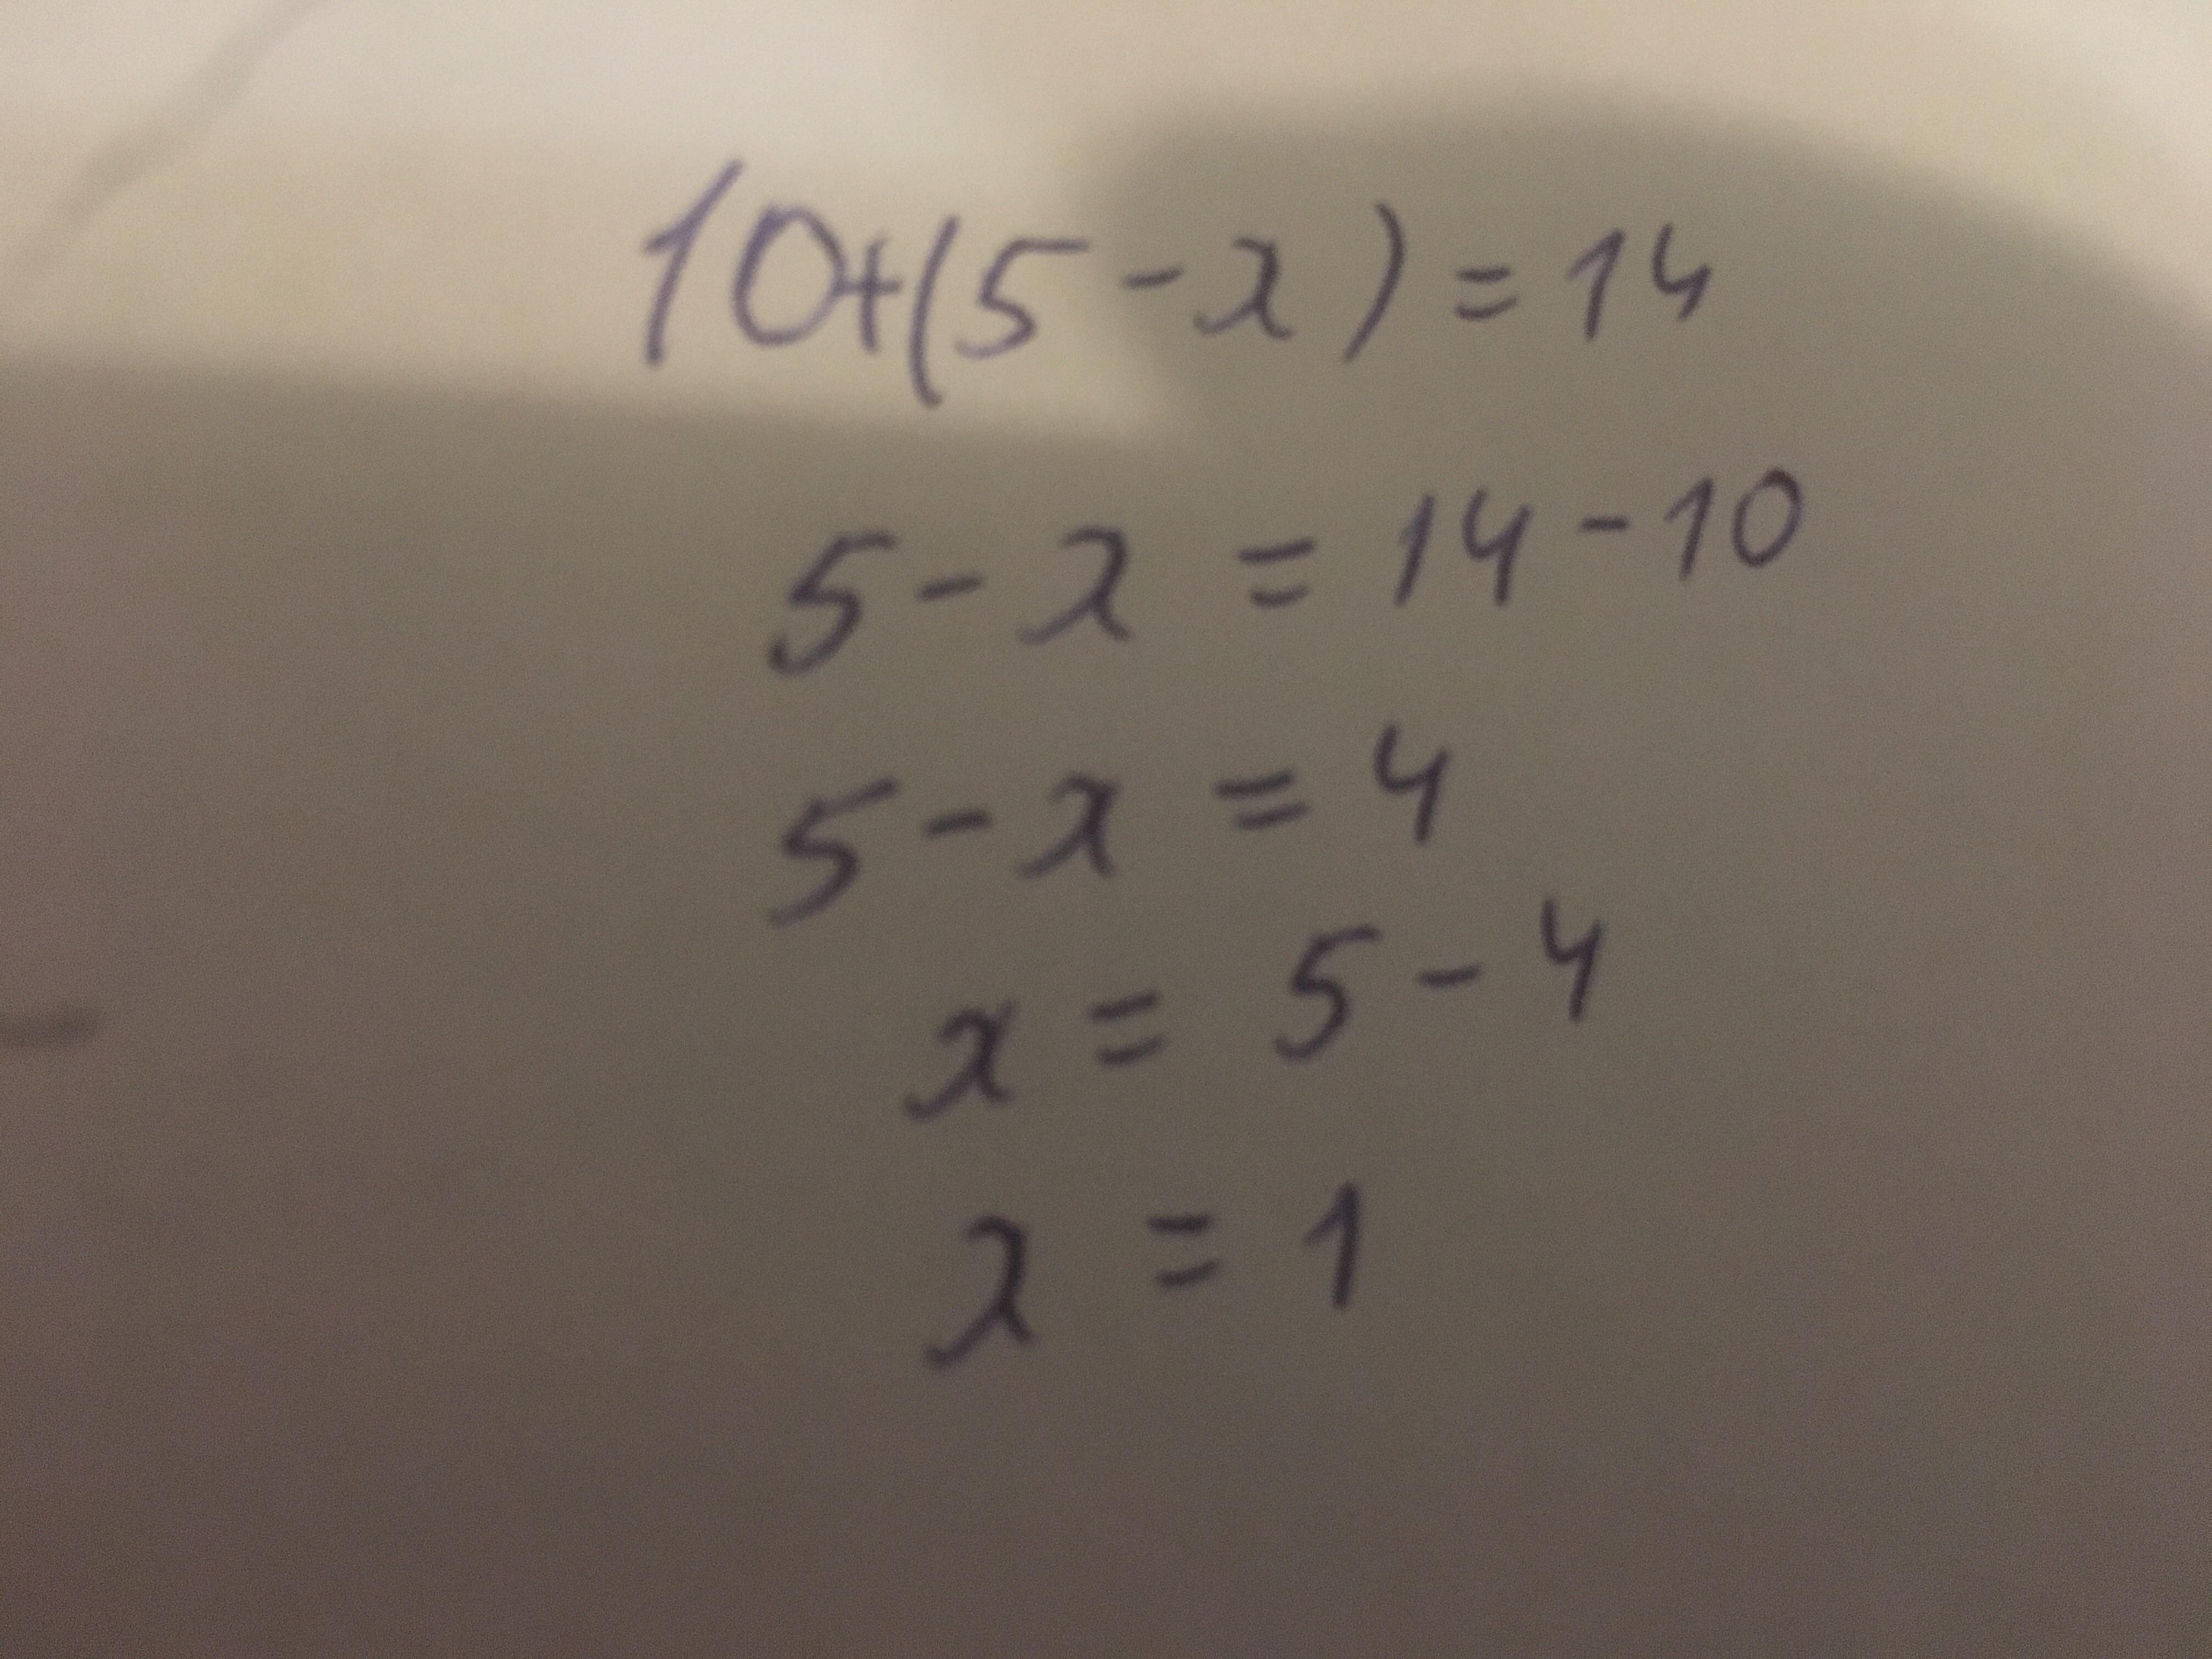 10+(5-x)=14
5-x=14-10
5-x=4
x=5-4
x=1